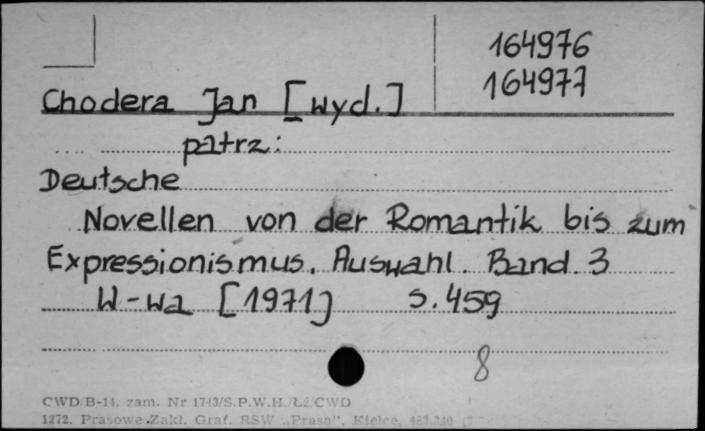 164976
164977
Chodera Jan [wyd.]
patrz:
Deutsche
Novellen von der Romantik bis zum
Expressionismus. Auswahl. Band 3
W-wa [1971] s. 459
8
CWD/B-14. zam. Nr 1743/S.P.W.H./Łż/CWD
1272. Prasowe Zakł. Graf. RSW „Prasa”, Kielce.